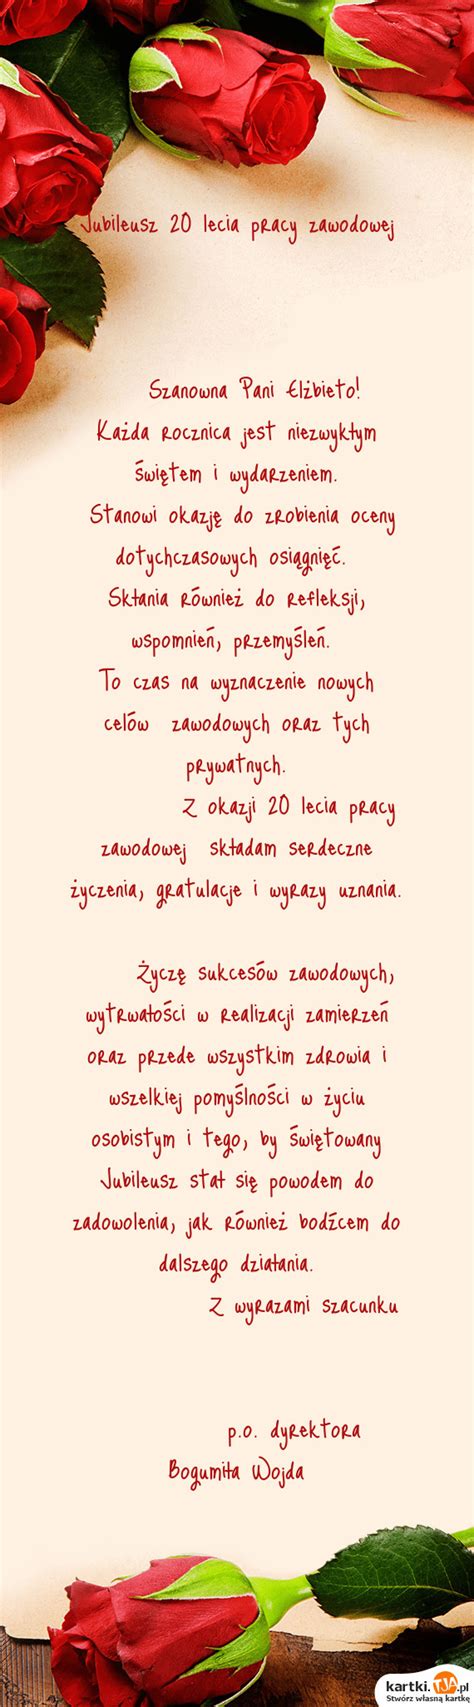 Jubileusz 20 lecia pracy zawodowej
Szanowna Pani Elżbieto!
Każda rocznica jest niezwykłym
świętem i wydarzeniem.
Stanowi okazję do zrobienia oceny
dotychczasowych osiągnięć.
Skłania również do refleksji,
wspomnień, przemyśleń.
To czas na wyznaczenie nowych
celów zawodowych oraz tych
prywatnych.
Z okazji 20 lecia pracy
zawodowej składam serdeczne
życzenia, gratulacje i wyrazy uznania.
Życzę sukcesów zawodowych,
wytrwałości w realizacji zamierzeń
oraz przede wszystkim zdrowia i
wszelkiej pomyślności w życiu
osobistym i tego, by świętowany
Jubileusz stał się powodem do
zadowolenia, jak również bodźcem do
dalszego działania.
Z wyrazami szacunku
p.o. dyrektora
Bogumiła Wojda
kartki.TJA.pl
Stwórz własną kartkę